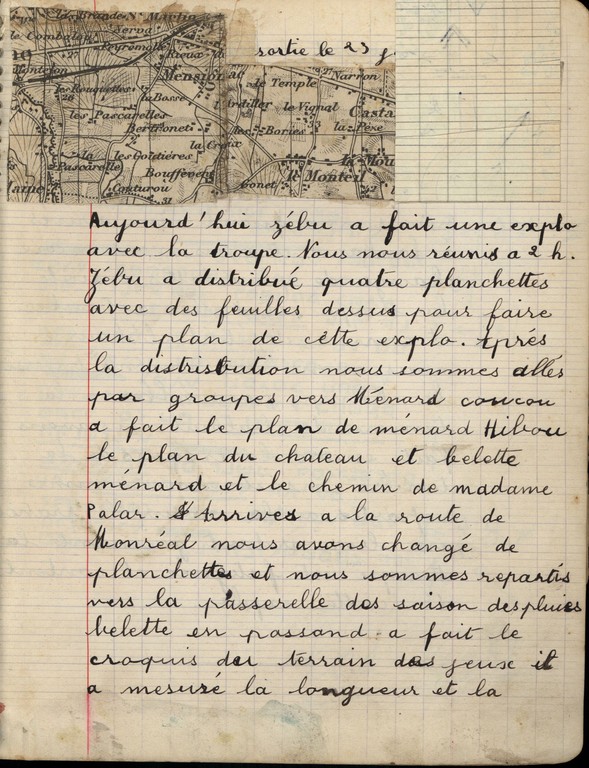 les Brandes N. Martin
Serval
le Combalou
Peyromalle
Rieux
Montréal
Mensignac
le Temple
Narron
les Rouquettes
26
la Bosse
l'Ardiller
le Vignal
Casta
les Pascarelles
Bertronet
les Bories
53
la Pèze
la Croix
la Mou
la Pascarelle
les Goldières
Bouffevent
Gonet
le Monteil
Couturou
31
sortie le 23 j
Aujourd'hui zébu a fait une explo
avec la troupe. Nous nous réunis a 2 h.
Zébu a distribué quatre planchettes
avec des feuilles dessus pour faire
un plan de cette explo. Aprés
la distribution nous sommes allés
par groupes vers Ménard coucou
a fait le plan de ménard Hibou
le plan du chateau et belette
ménard et le chemin de madame
Palar. Arrives a la route de
Monréal nous avons changé de
planchettes et nous sommes repartis
vers la passerelle des saison des pluies
belette en passand a fait le
croquis du terrain des jeux il
a mesuré la longueur et la